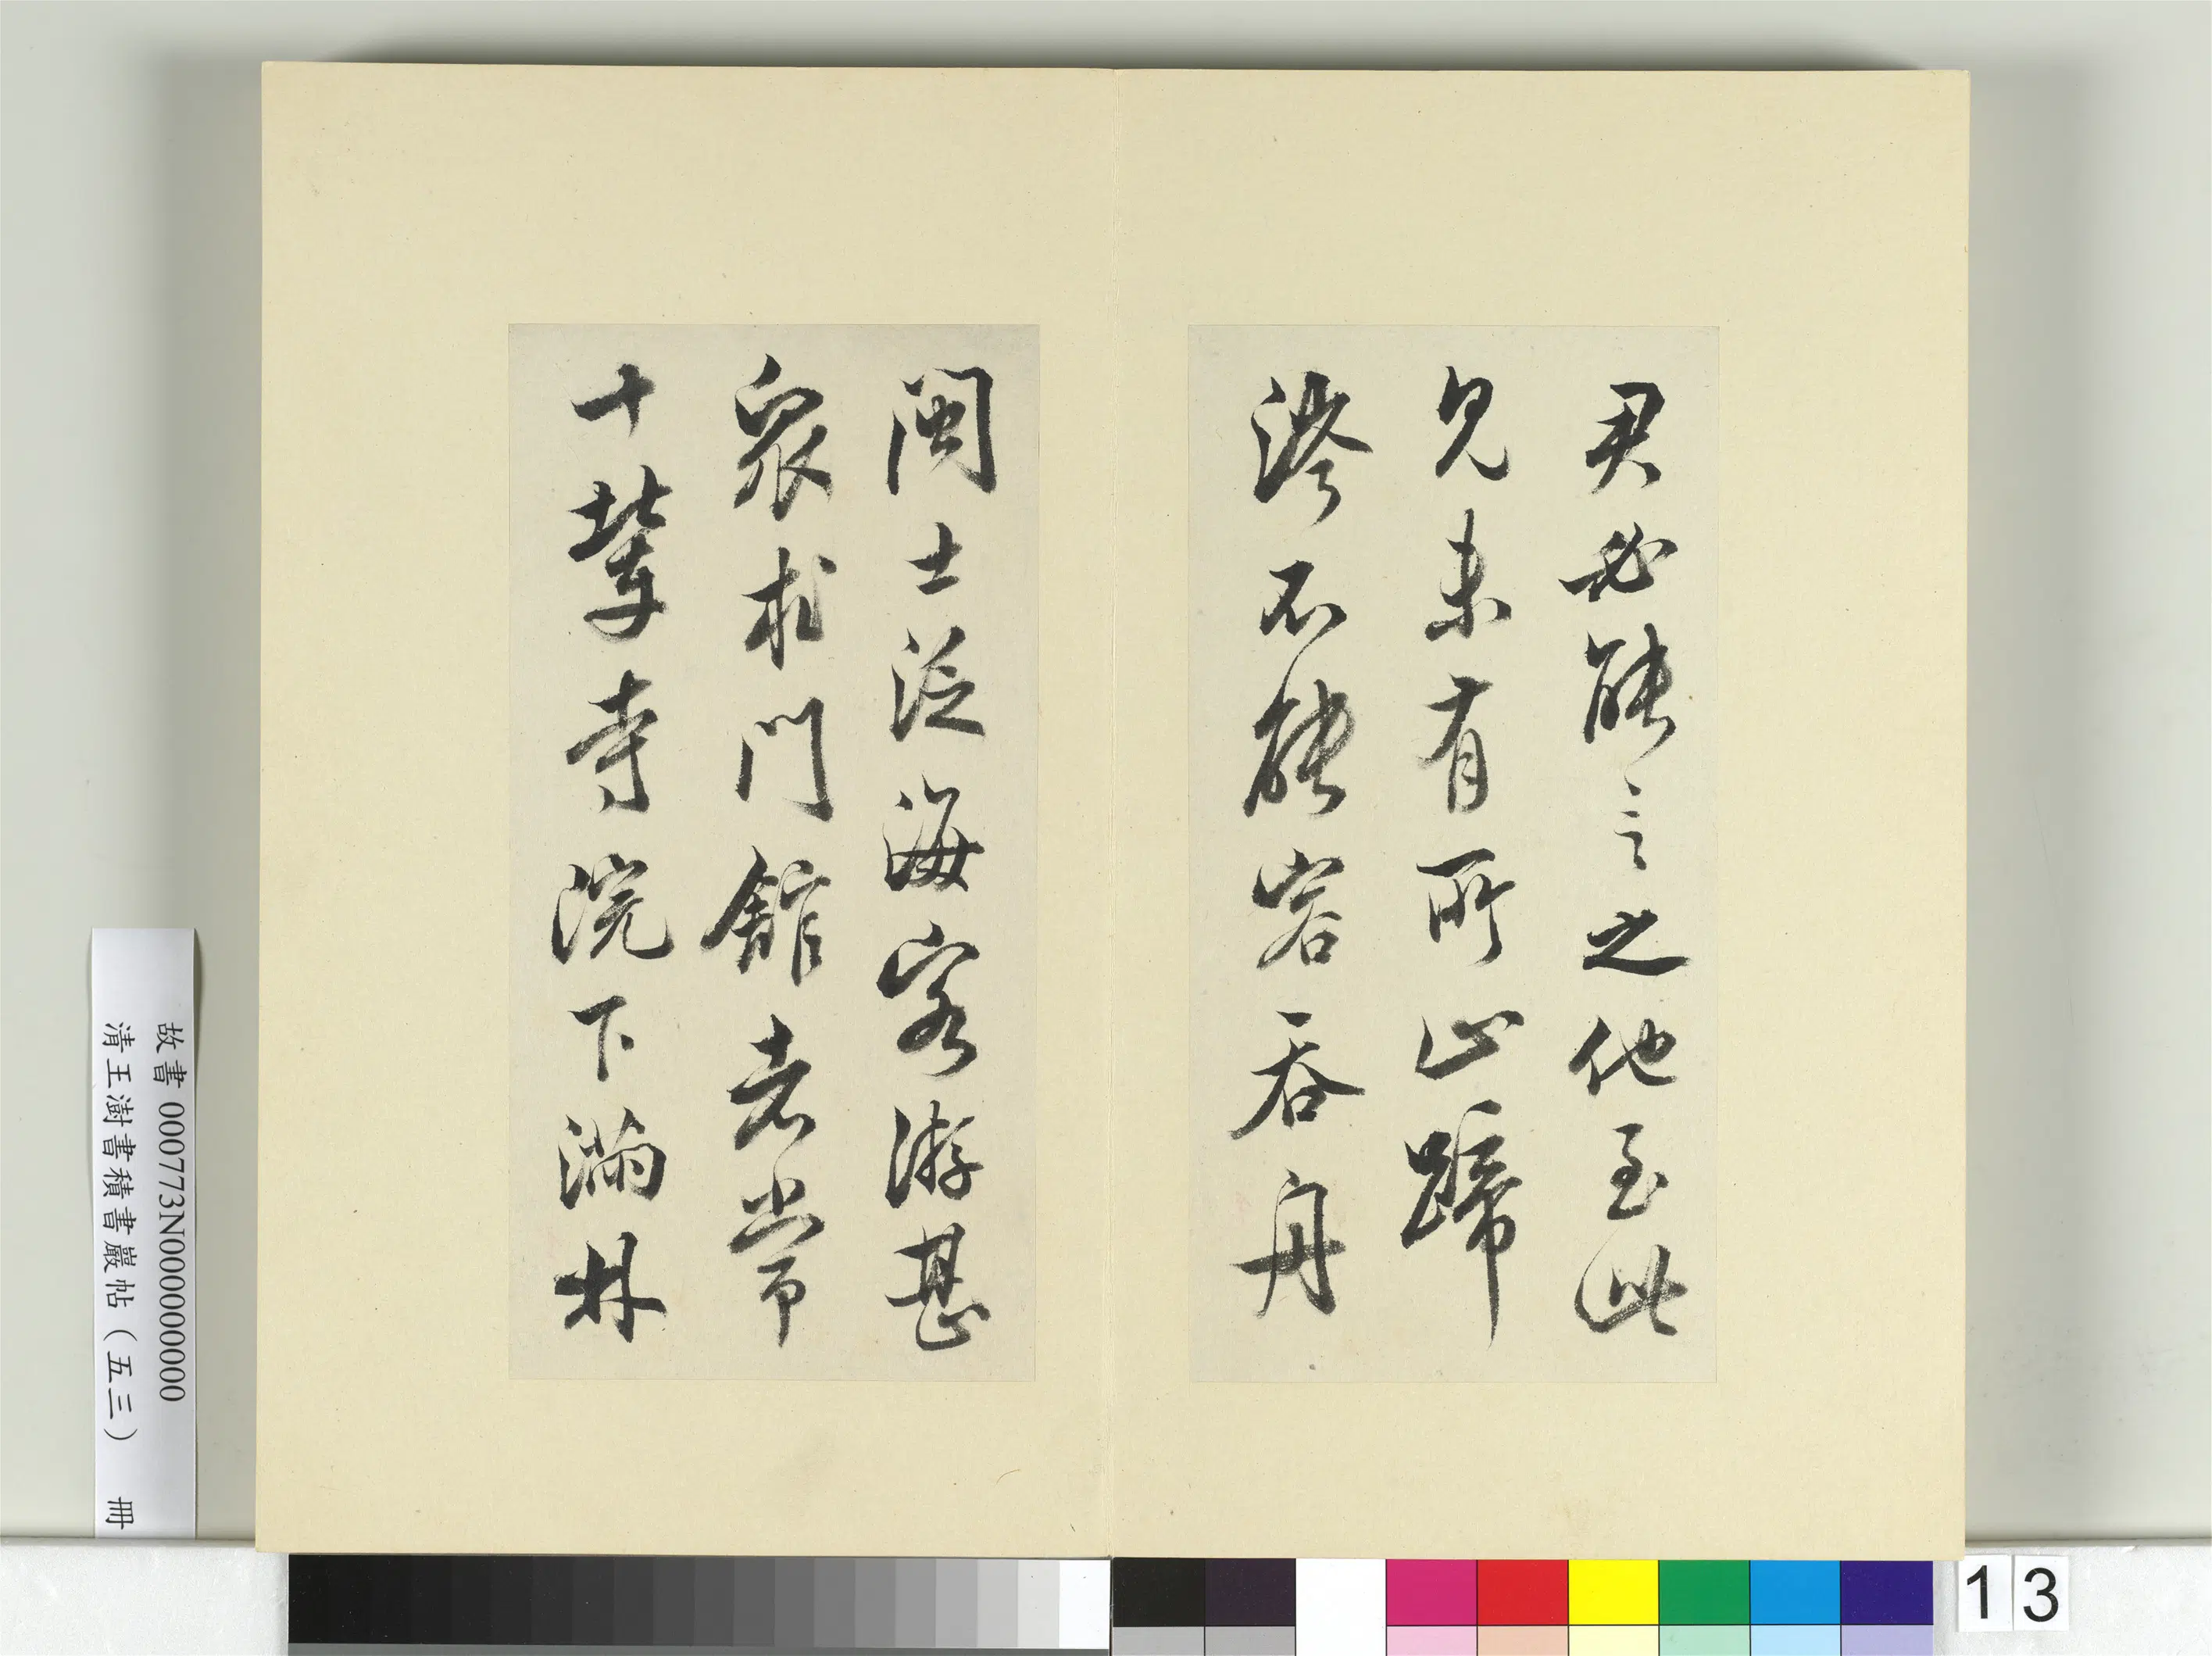 君必能言之他至此
見未有所止蹄
涔不能容吞舟
閩士泛海客游甚
衆求門館者常
十輩寺院下滿林
故書 000773N000000000
清王澍書積書巖帖（五三） 冊
13